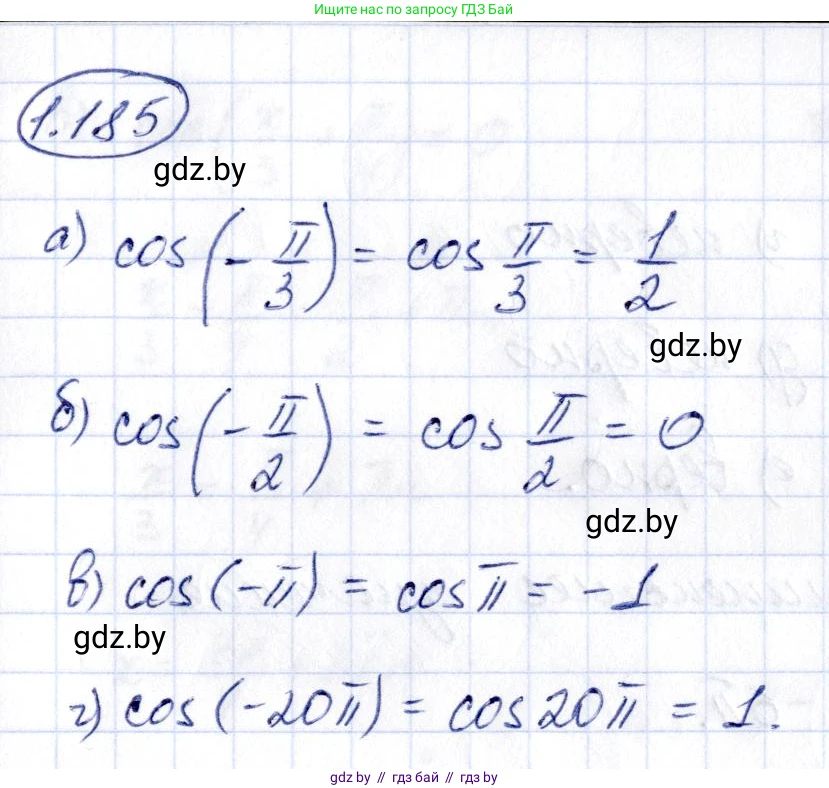 Ищите нас по запросу ГДЗ Бай
1.185
gdz.by
а) cos(-π/3) = cos π/3 = 1/2
gdz.by
б) cos(-π/2) = cos π/2 = 0
gdz.by
в) cos(-π) = cos π = -1
gdz.by
г) cos(-20π) = cos 20π = 1.
gdz.by // гдз бай // гдз by